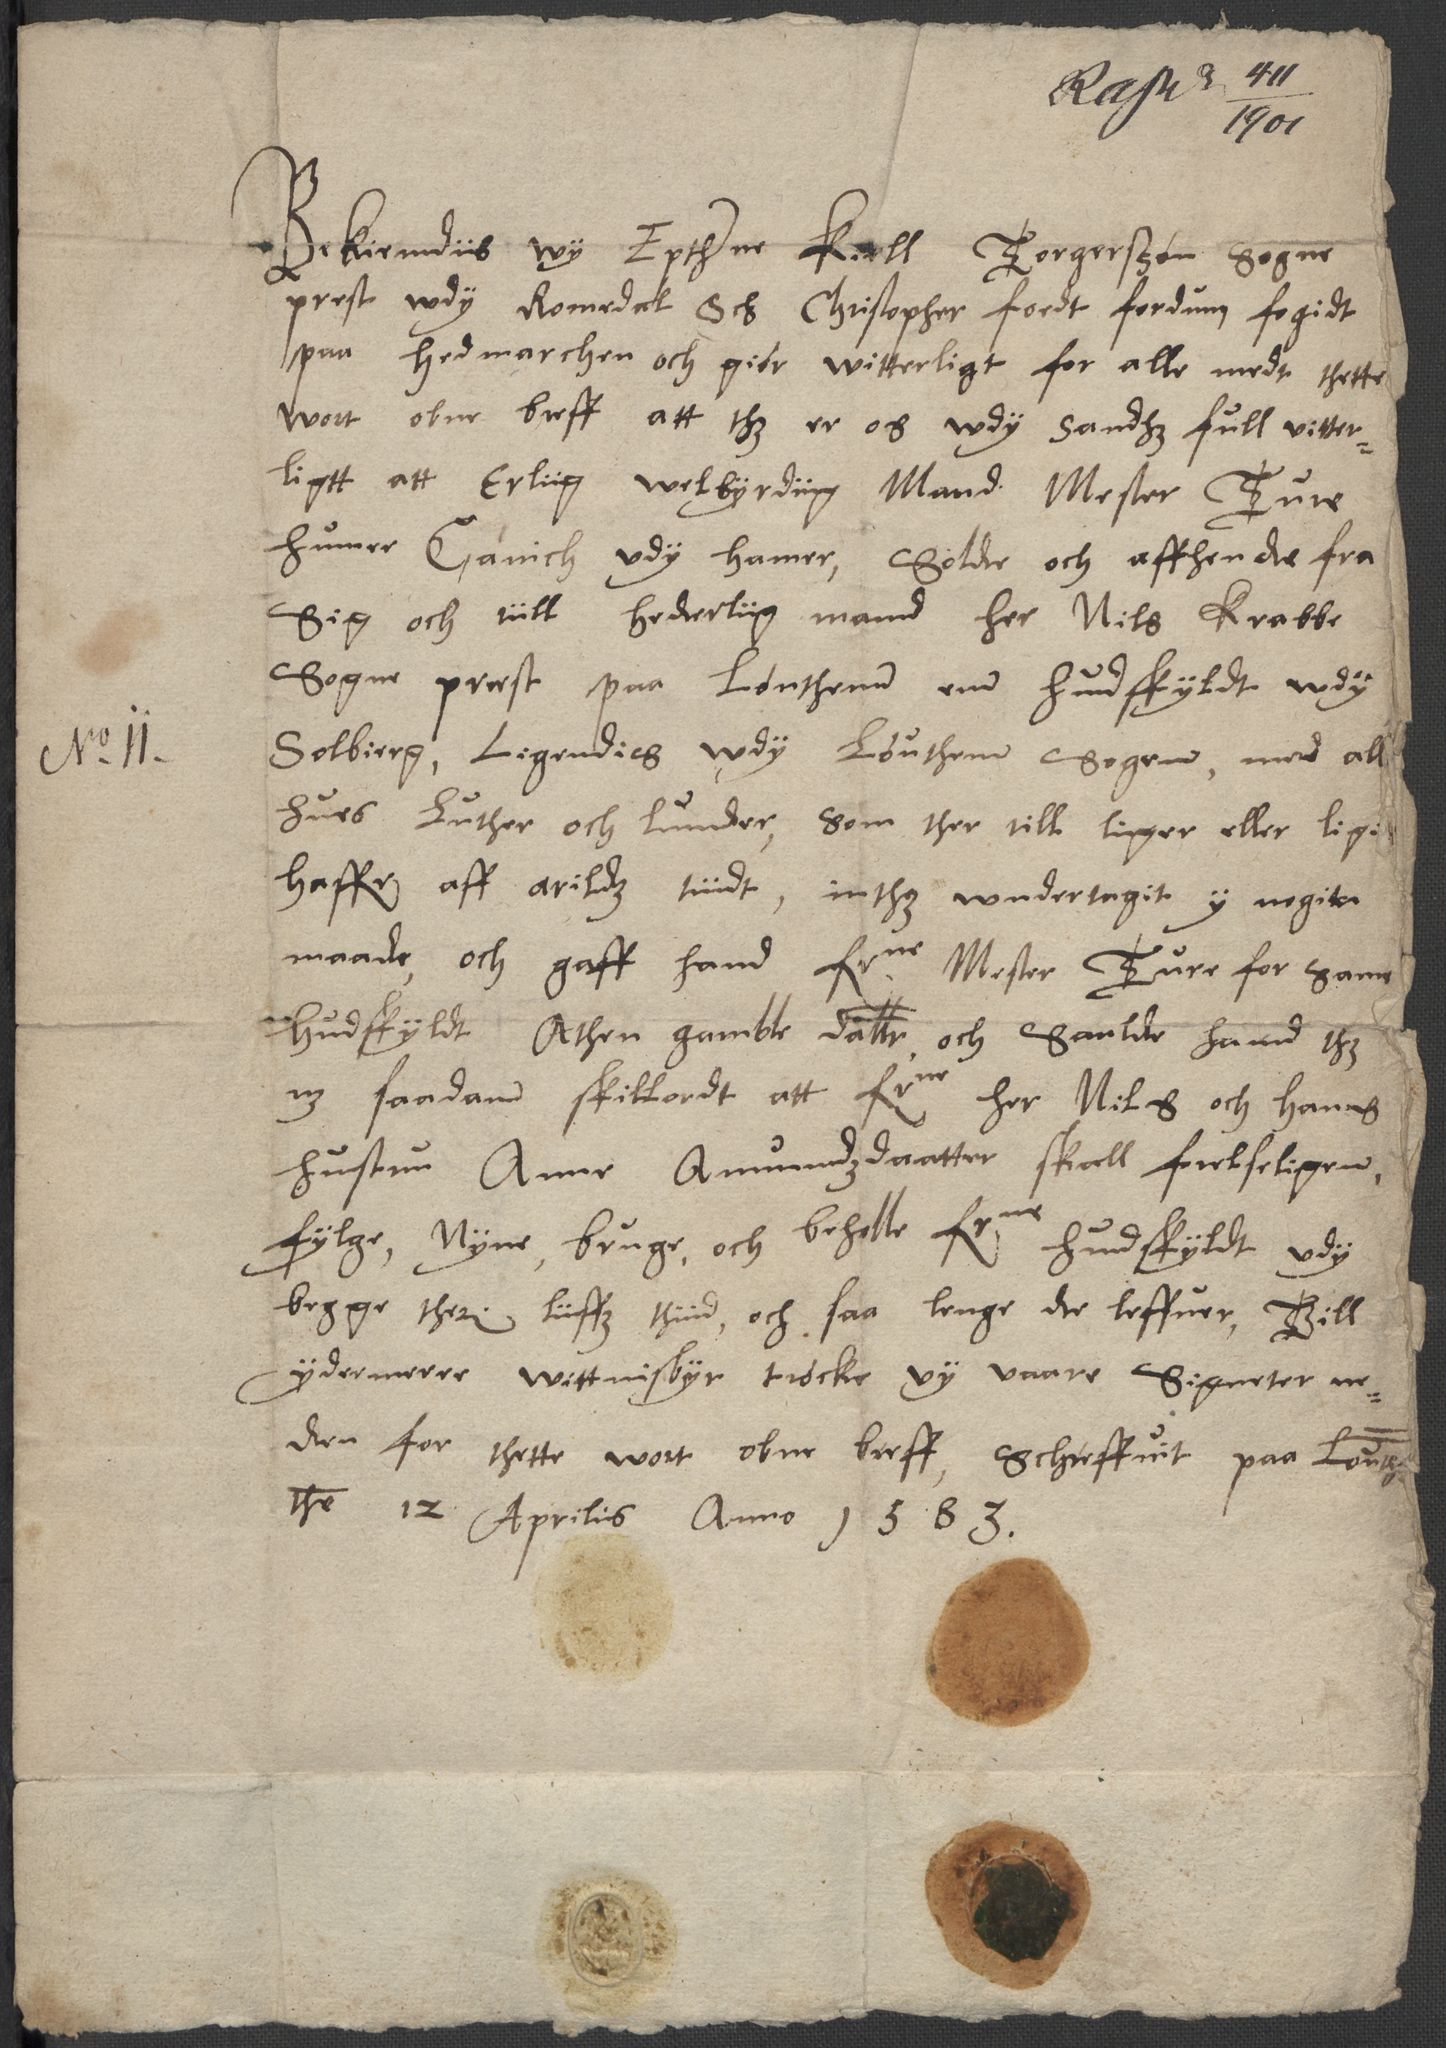 411
1901
Bekiendiis wÿ Epthrne Kield Torgerszøn Sogne
prest wdÿ Romedal Och Christopher foedt fordum fogidt
paa Hedmarchen och giør witterligt for alle medt thette
wort obne breff att thz er os wdÿ Sandhz full vitter-
ligtt att Erliig welbÿrdiig Mand Mester Ture
humer Canich vdÿ hamer, Solde och affhende fra
Sig och tiill hederliig mand her Nils Krabbe
Sogne prest paa Løuthenn enn hudskÿldt wdÿ
No 11.
Solbierg, Ligendiss wdÿ Løuthenn Sogenn, med all
hues Luther och lunder, som ther till liger eller ligit
haffr aff arildz tiidt, inthz wndertagit ÿ nogitn
maade, och gaff hand frne Mester Ture for same
Hudskÿldt Athen gamble daller, och Saulde hand thz
mz saadann skilkordt att frne her Nils och hanns
hustru Anne Amundzdaatter skall frelseligenn,
fÿlge, Nÿne, bruge, och beholle frne hudskÿldt vdÿ
begge theris liiffz thiid, och saa lenge de leffuer, Till
ÿdermere wittnisbÿr trøcke vÿ vaare Signeter ne-
den for thette wort obne breff, Schreffuit paa Løuth
the 12 Aprilis Anno 1583.